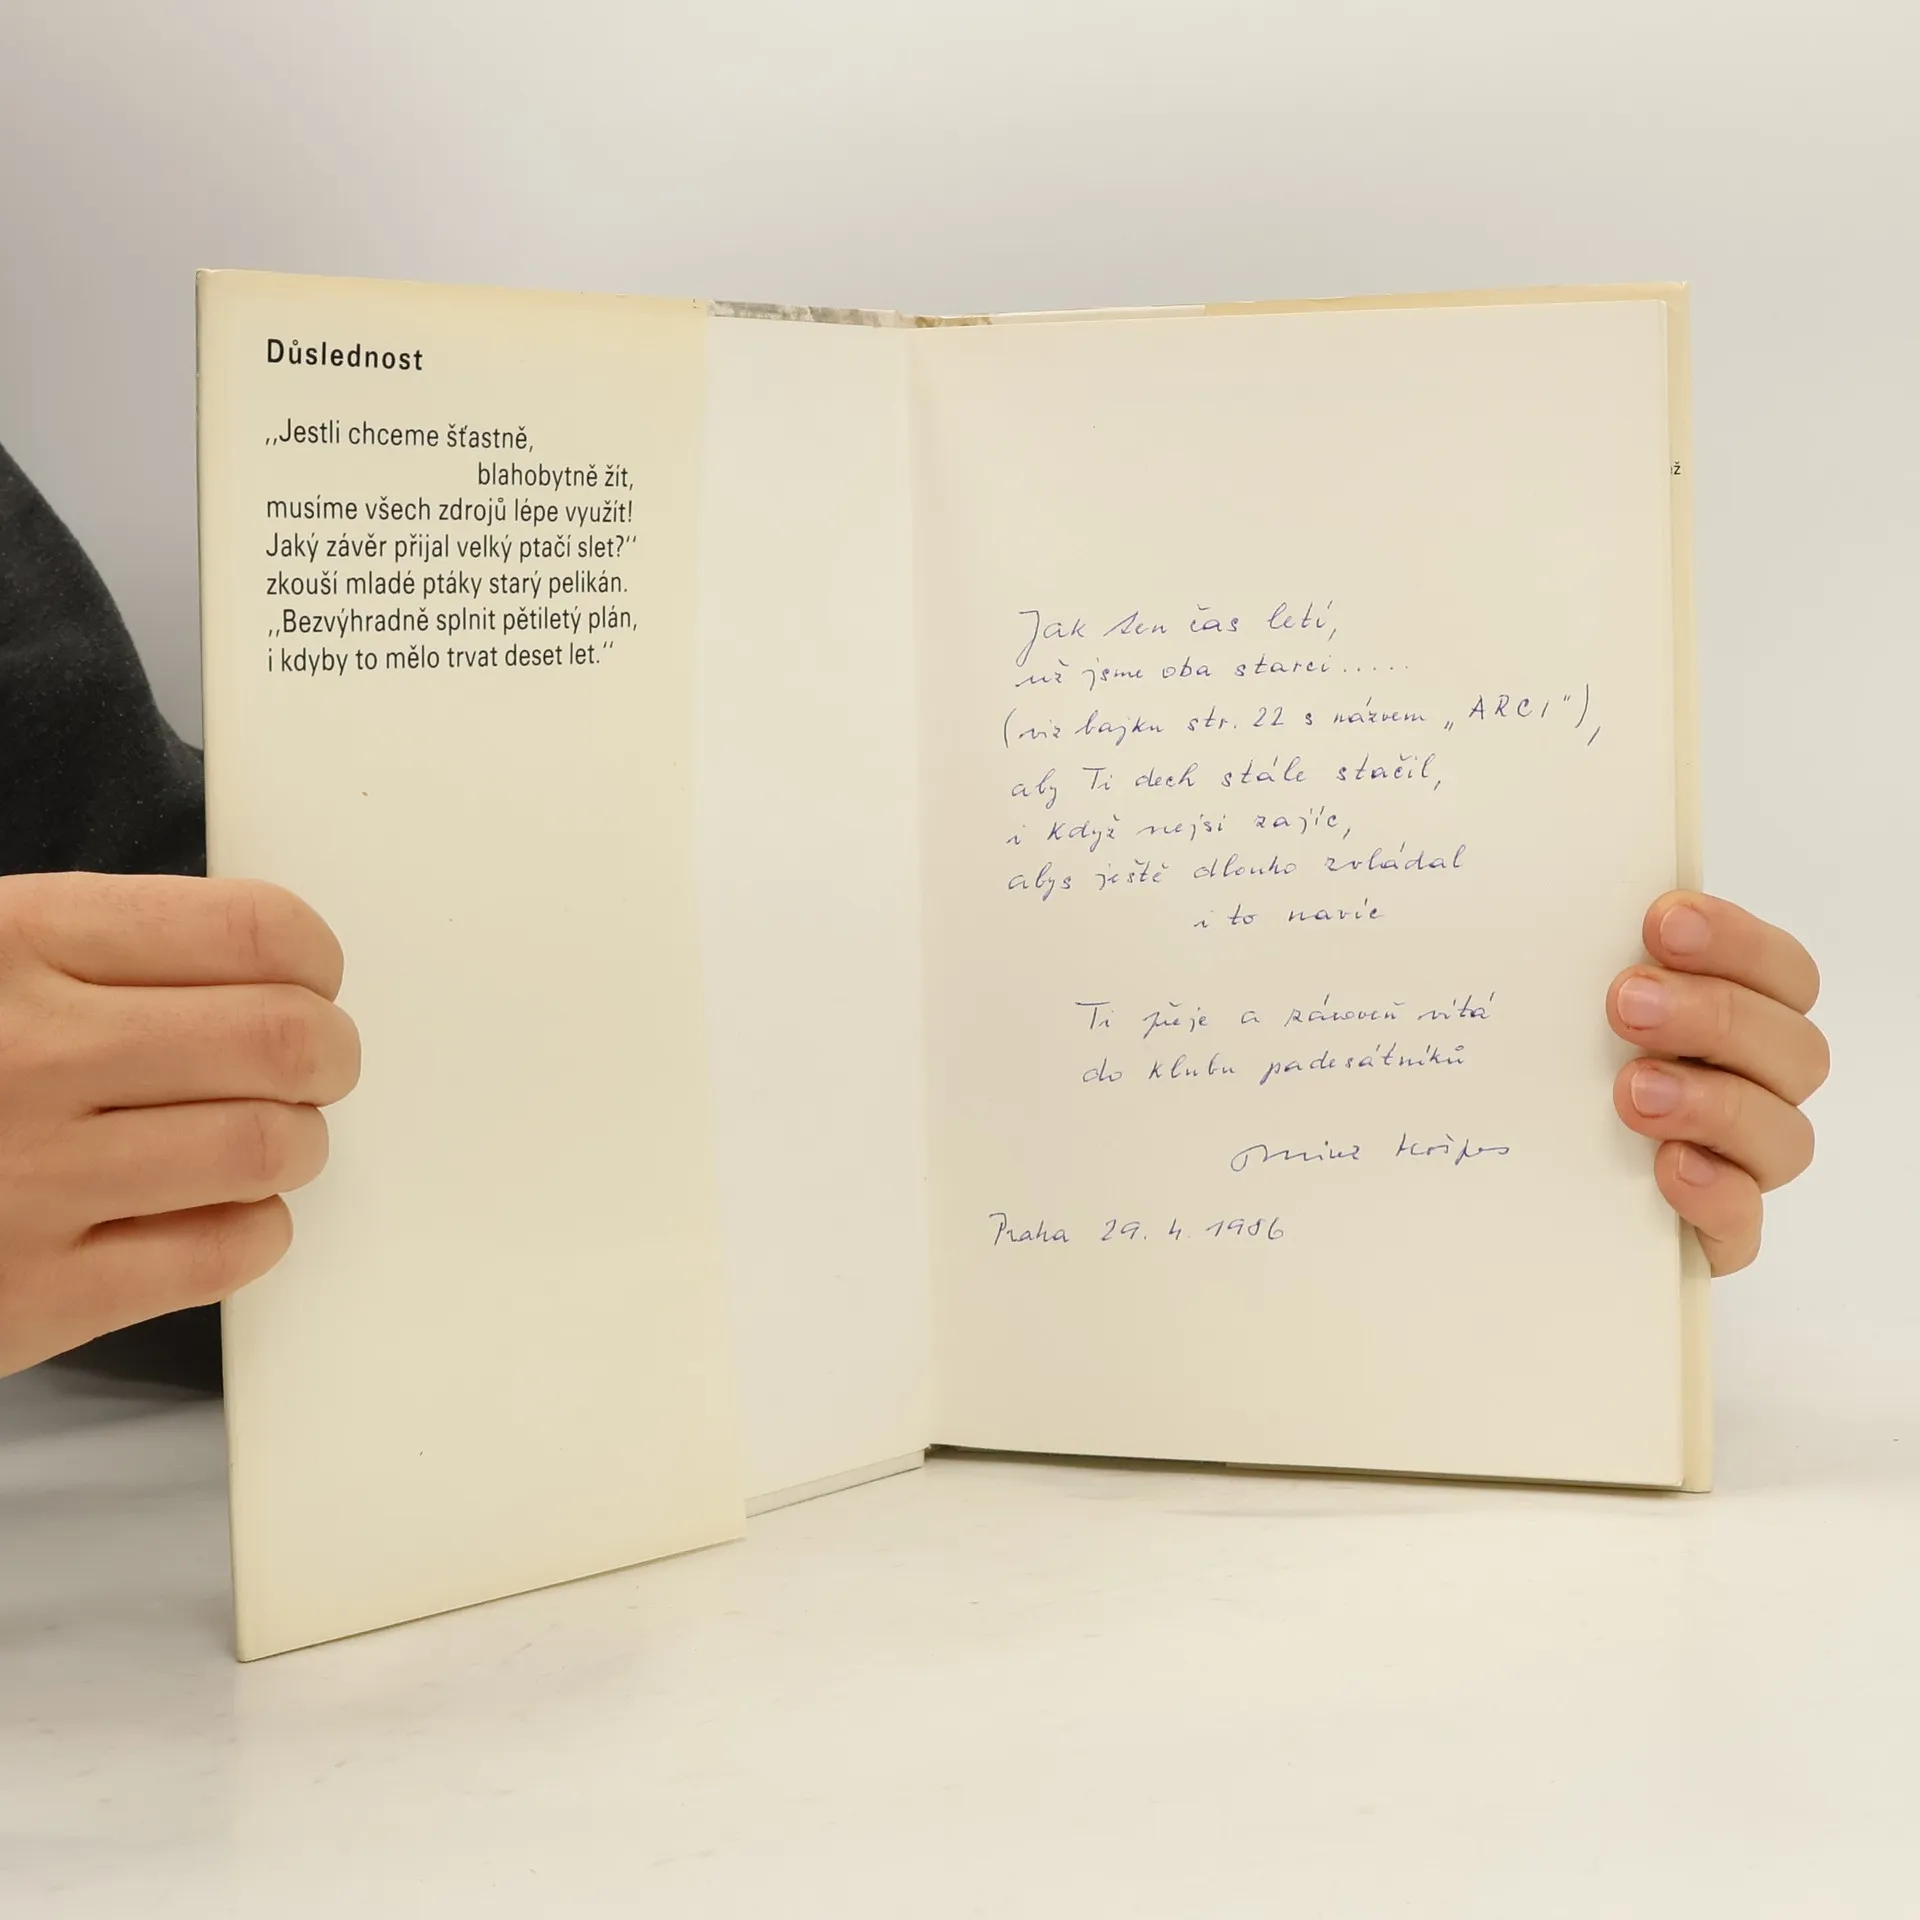 Důslednost
,,Jestli chceme šťastně,
blahobytně žít,
musíme všech zdrojů lépe využít!
Jaký závěr přijal velký ptačí slet?“
zkouší mladé ptáky starý pelikán.
,,Bezvýhradně splnit pětiletý plán,
i kdyby to mělo trvat deset let.“
Jak ten čas letí,
už jsme oba starci.....
(viz bajku str. 22 s názvem „ARCI"),
aby Ti dech stále stačil,
i když nejsi zajíc,
abys ještě dlouho zvládal
i to navíc
Ti přeje a zároveň vítá
do klubu padesátníků
Praha 29. 4. 1986
ž